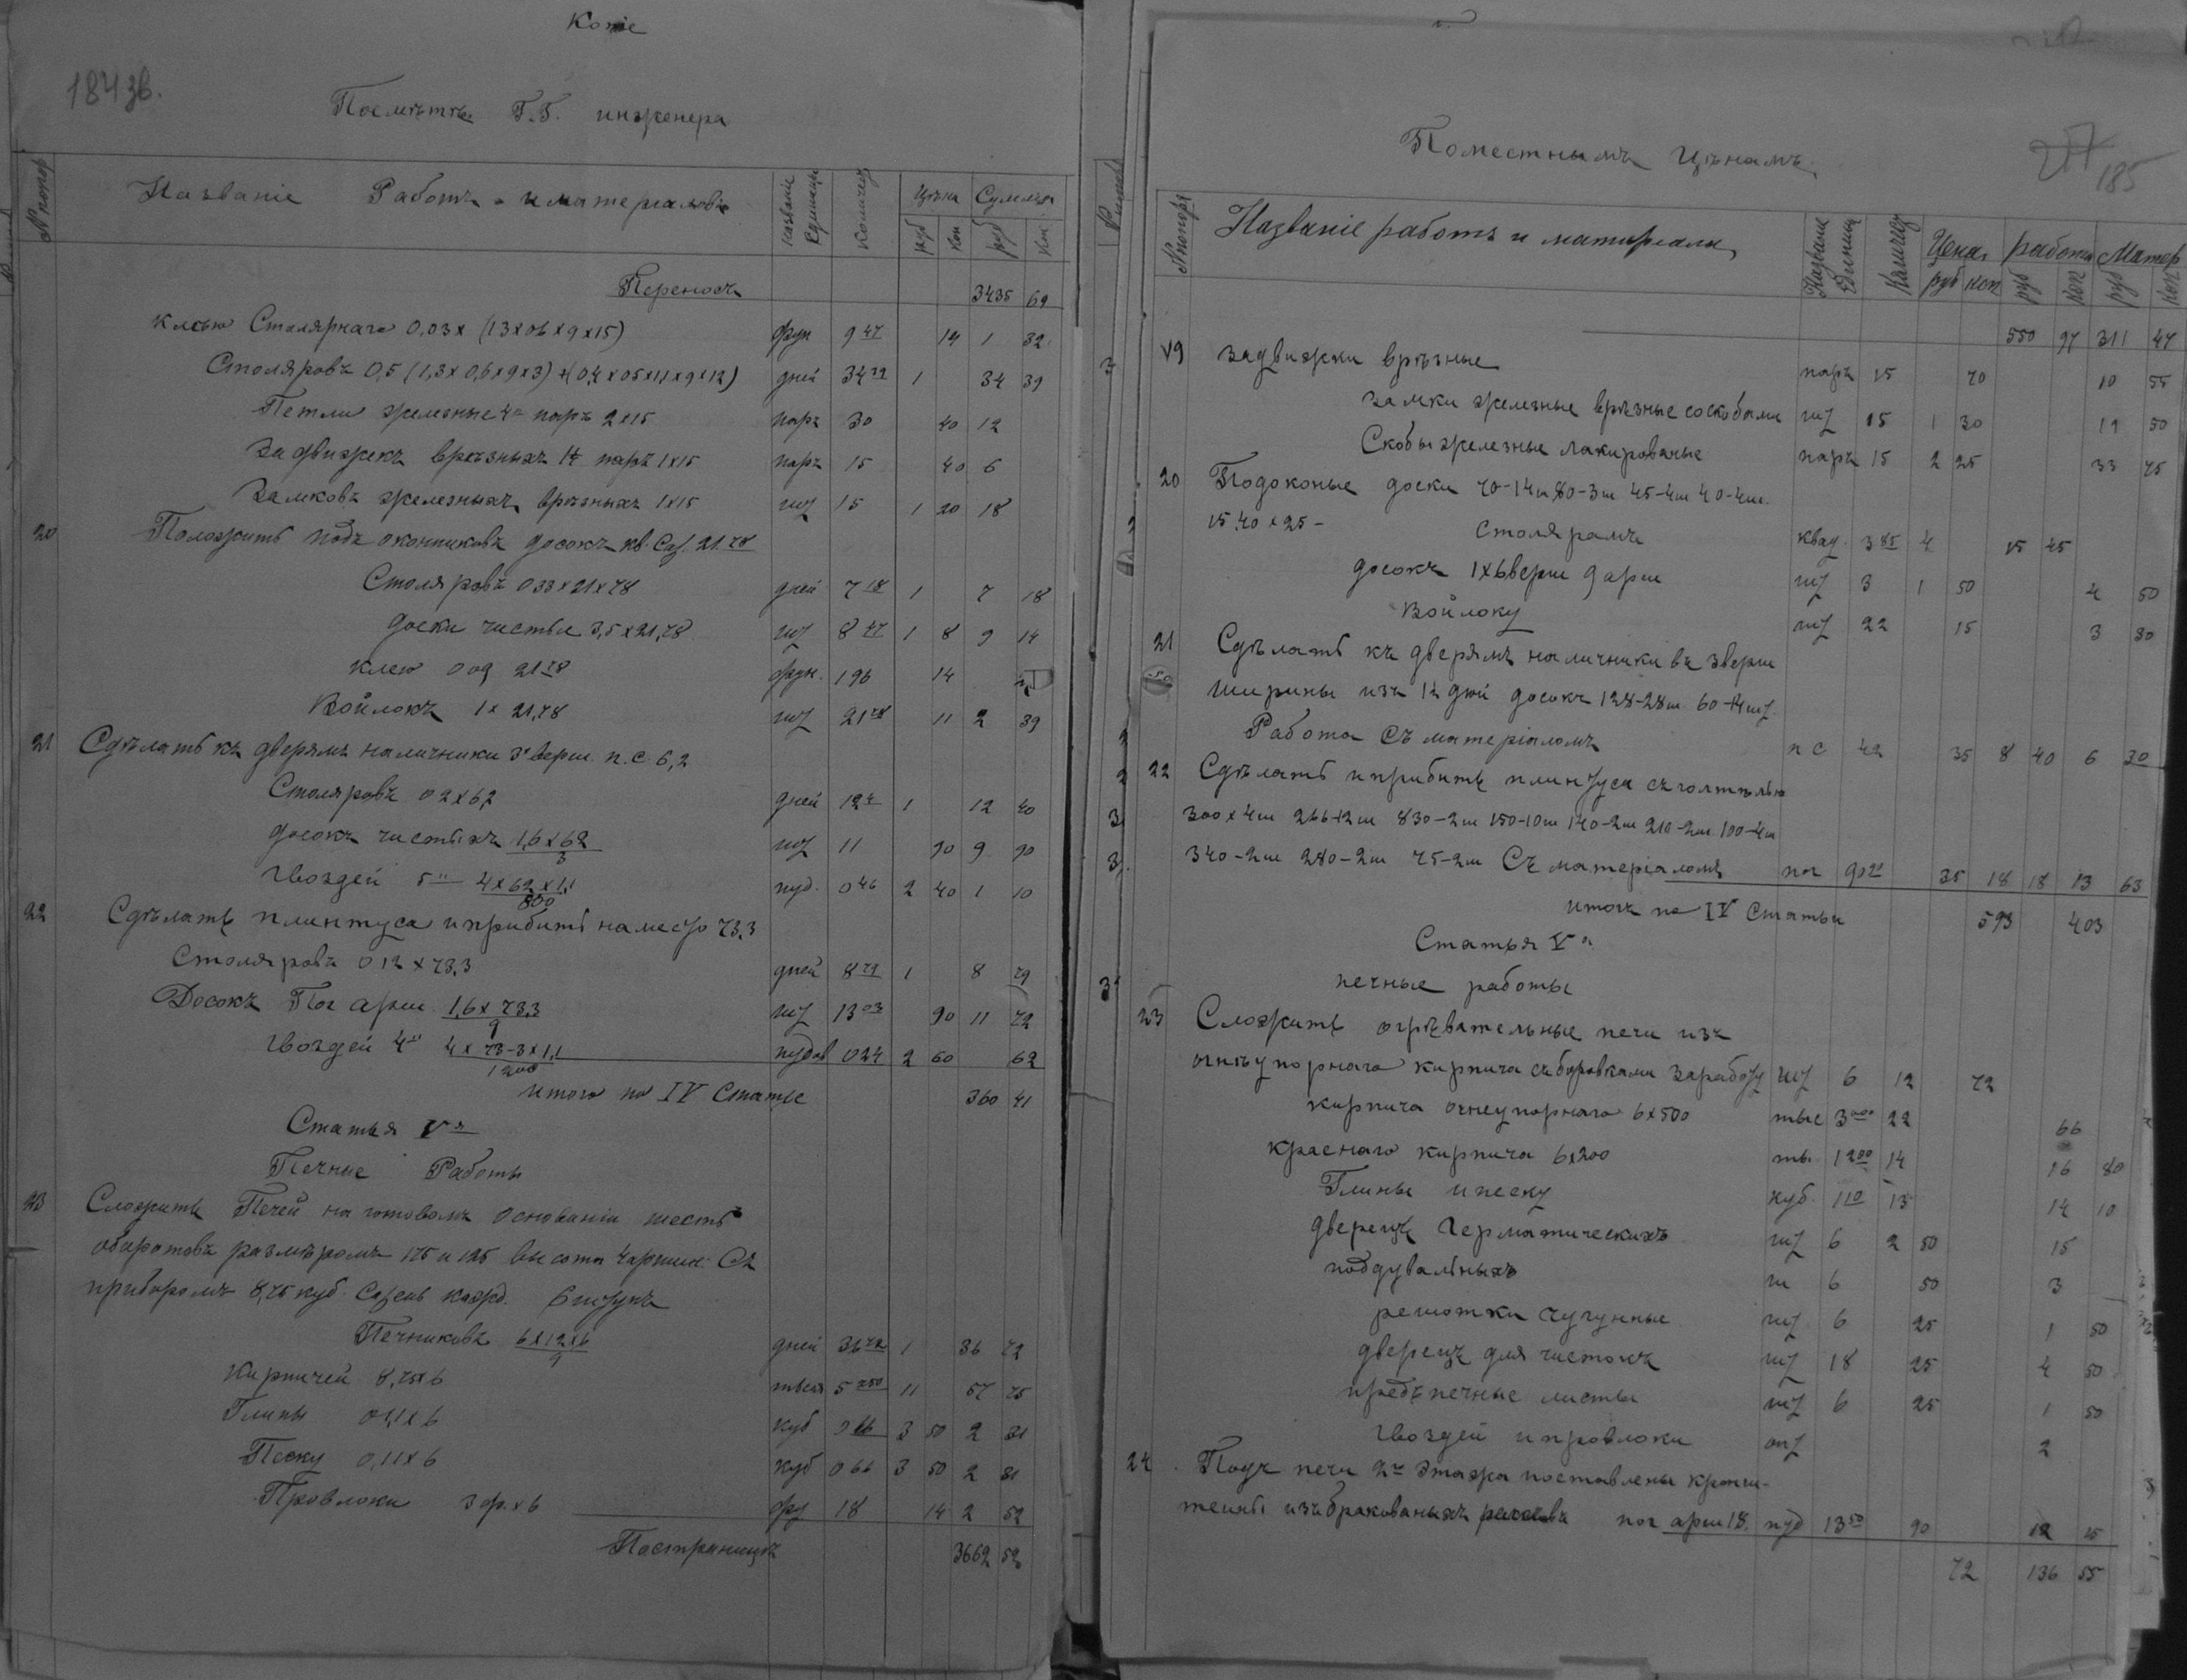 Копіе
184 зв.
Посмѣтѣ Г.Г. инженера
№ попор
Названіе Работъ и матерьяловъ
Названіе Единицы
Количес
Цѣна
Сумма
руб
коп
руб
коп
Переносъ 3435 69
Клею Столярнаго 0,03 х (1,3х06х9х15) фун 9 47 14 1 32
Столяровъ 0,5 (1,3х0,6х9х3)+(0,4х05х1,1х9х12) дней 34 39 1 34 39
Петли железные 4" паръ 2х15 паръ 30 40 12
Задвижекъ врезныхъ паръ 1х15 паръ 15 40 6
Замковъ железныхъ врезныхъ 1х15 шт 15 1 20 18
20 Положить подъ оконниковъ досокъ кв. Саж. 21.78
Столяровъ 033х21х78 дней 7 18 1 7 18
доски чистые 3,5х21,78 шт 8 47 1 8 9 14
клею 009 21 78 фун. 196 14
Войлокъ 1х21,78 шт 21 78 11 2 39
21 Сдѣлать къ дверямъ наличники 3 верш. п.с. 6,2
Столяровъ 02х62 дней 12 4 1 12 40
досокъ чистыхъ 1,6х62/3 шт 11 90 9 90
Гвоздей 5" 4х62х1,1/800 пуд. 0 46 2 40 1 10
22 Сдѣлать плинтуса и прибить на место 73,3
Столяровъ 012х73,3 дней 8 79 1 8 79
Досокъ Пог арш. 1,6х73,3/9 шт 13 03 90 11 72
Гвоздей 4" 4х73-3х1,1/1200 пудов 024 2 60 62
Итого по IV Статье 360 41
Статья V я
Печные Работы
23 Сложить Печей на готовомъ основаніи шесть
оборотовъ размѣромъ 175 и 125 высота 4 аршин. Съ
приборомъ 8,75 куб. Сажень кажд. 6 штукъ
Печниковъ 6х12х6/9 дней 36 72 1 36 72
Кирпичей 8,75х6 тысяч 5 250 11 57 75
Глины 0,11х6 куб 0 66 3 50 2 31
Песку 0,11х6 куб 0 66 3 50 2 31
Провлоки 3 ф.х6 фу 18 14 2 52
Постраницѣ 3662 52
Поместнымъ Цѣнамъ
185
№ попор
Названіе работъ и матиріала
Названіе Единиц
Количес
Цена
работа
Матер
руб коп руб коп руб коп
550 97 311 47
19 задвижки врѣзные паръ 15 70 10 55
замки железные врѣзные со скобами шт 15 1 30 19 50
Скобы железные лакированые паръ 15 2 25 33 75
20 Подоконые доски 70-14ш 80-3ш 45-4ш 40-4ш.
15 40х25- Столярамъ квад. 3 85 4 15 45
досокъ 1х6 верш 9 арш шт 3 1 50 4 50
Войлоку шт 22 15 3 30
21 Сдѣлать къ дверямъ наличники въ 3 верш
ширины изъ 1½ дюй досокъ 128-28ш 60-14шт.
Работа Съ матеріаломъ п с 42 35 8 40 6 30
22 Сдѣлать и прибить плинтуса съ голтелью
300х4ш 266-12ш 830-2ш 150-10ш 140-2ш 210-2ш 100-4ш
340-2ш 280-2ш 75-2ш Съ матеріаломъ пог 90 91 35 18 18 13 63
итогъ по IV Статьи 593 403
Статья V я
печные работы
23 Сложить огрѣвательные печи изъ
огнеупорнаго кирпича съ боровками за работу шт 6 12 72
кирпича огнеупорнаго 6х500 тыс 3 000 22 66
краснаго кирпича 6х200 ты. 1 200 14 16 80
Глины и песку куб. 1 10 13 14 10
дверецъ Герматическихъ шт 6 2 50 15
поддувальныхъ ш 6 50 3
решотки чугунные шт. 6 25 1 50
дверецъ для чистокъ шт 18 25 4 50
предъпечные листы шт 6 25 1 50
Гвоздей и провлоки 2
24 Подъ печи 2го Этажа поставлены кронш-
тейны изъ бракованыхъ пог арш 18. пуд 13 50 90 12 15
72 136 55